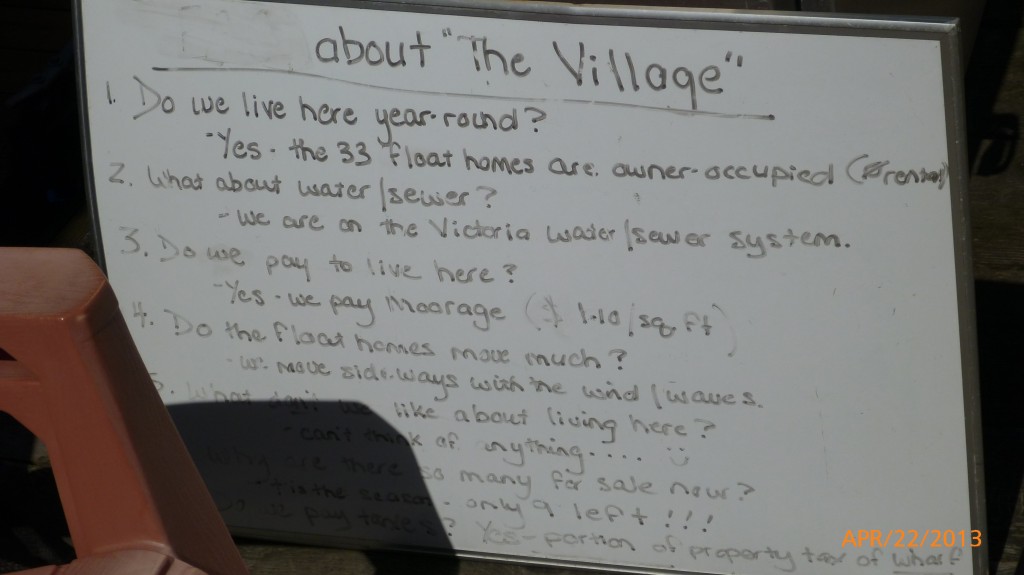 about "The Village"
1. Do we live here year-round?
- Yes - the 33 float homes are owner-occupied
2. What about water/sewer?
- we are on the Victoria water/sewer system.
3. Do we pay to live here?
- Yes - we pay Moorage ($1.10/sq ft)
4. Do the float homes move much?
- we move side-ways with the wind/waves.
5. What don't we like about living here?
- can't think of anything....
Why are there so many for sale now?
'tis the season - only 9 left!!!
pay taxes? Yes - portion of property tax of wharf
APR/22/2013